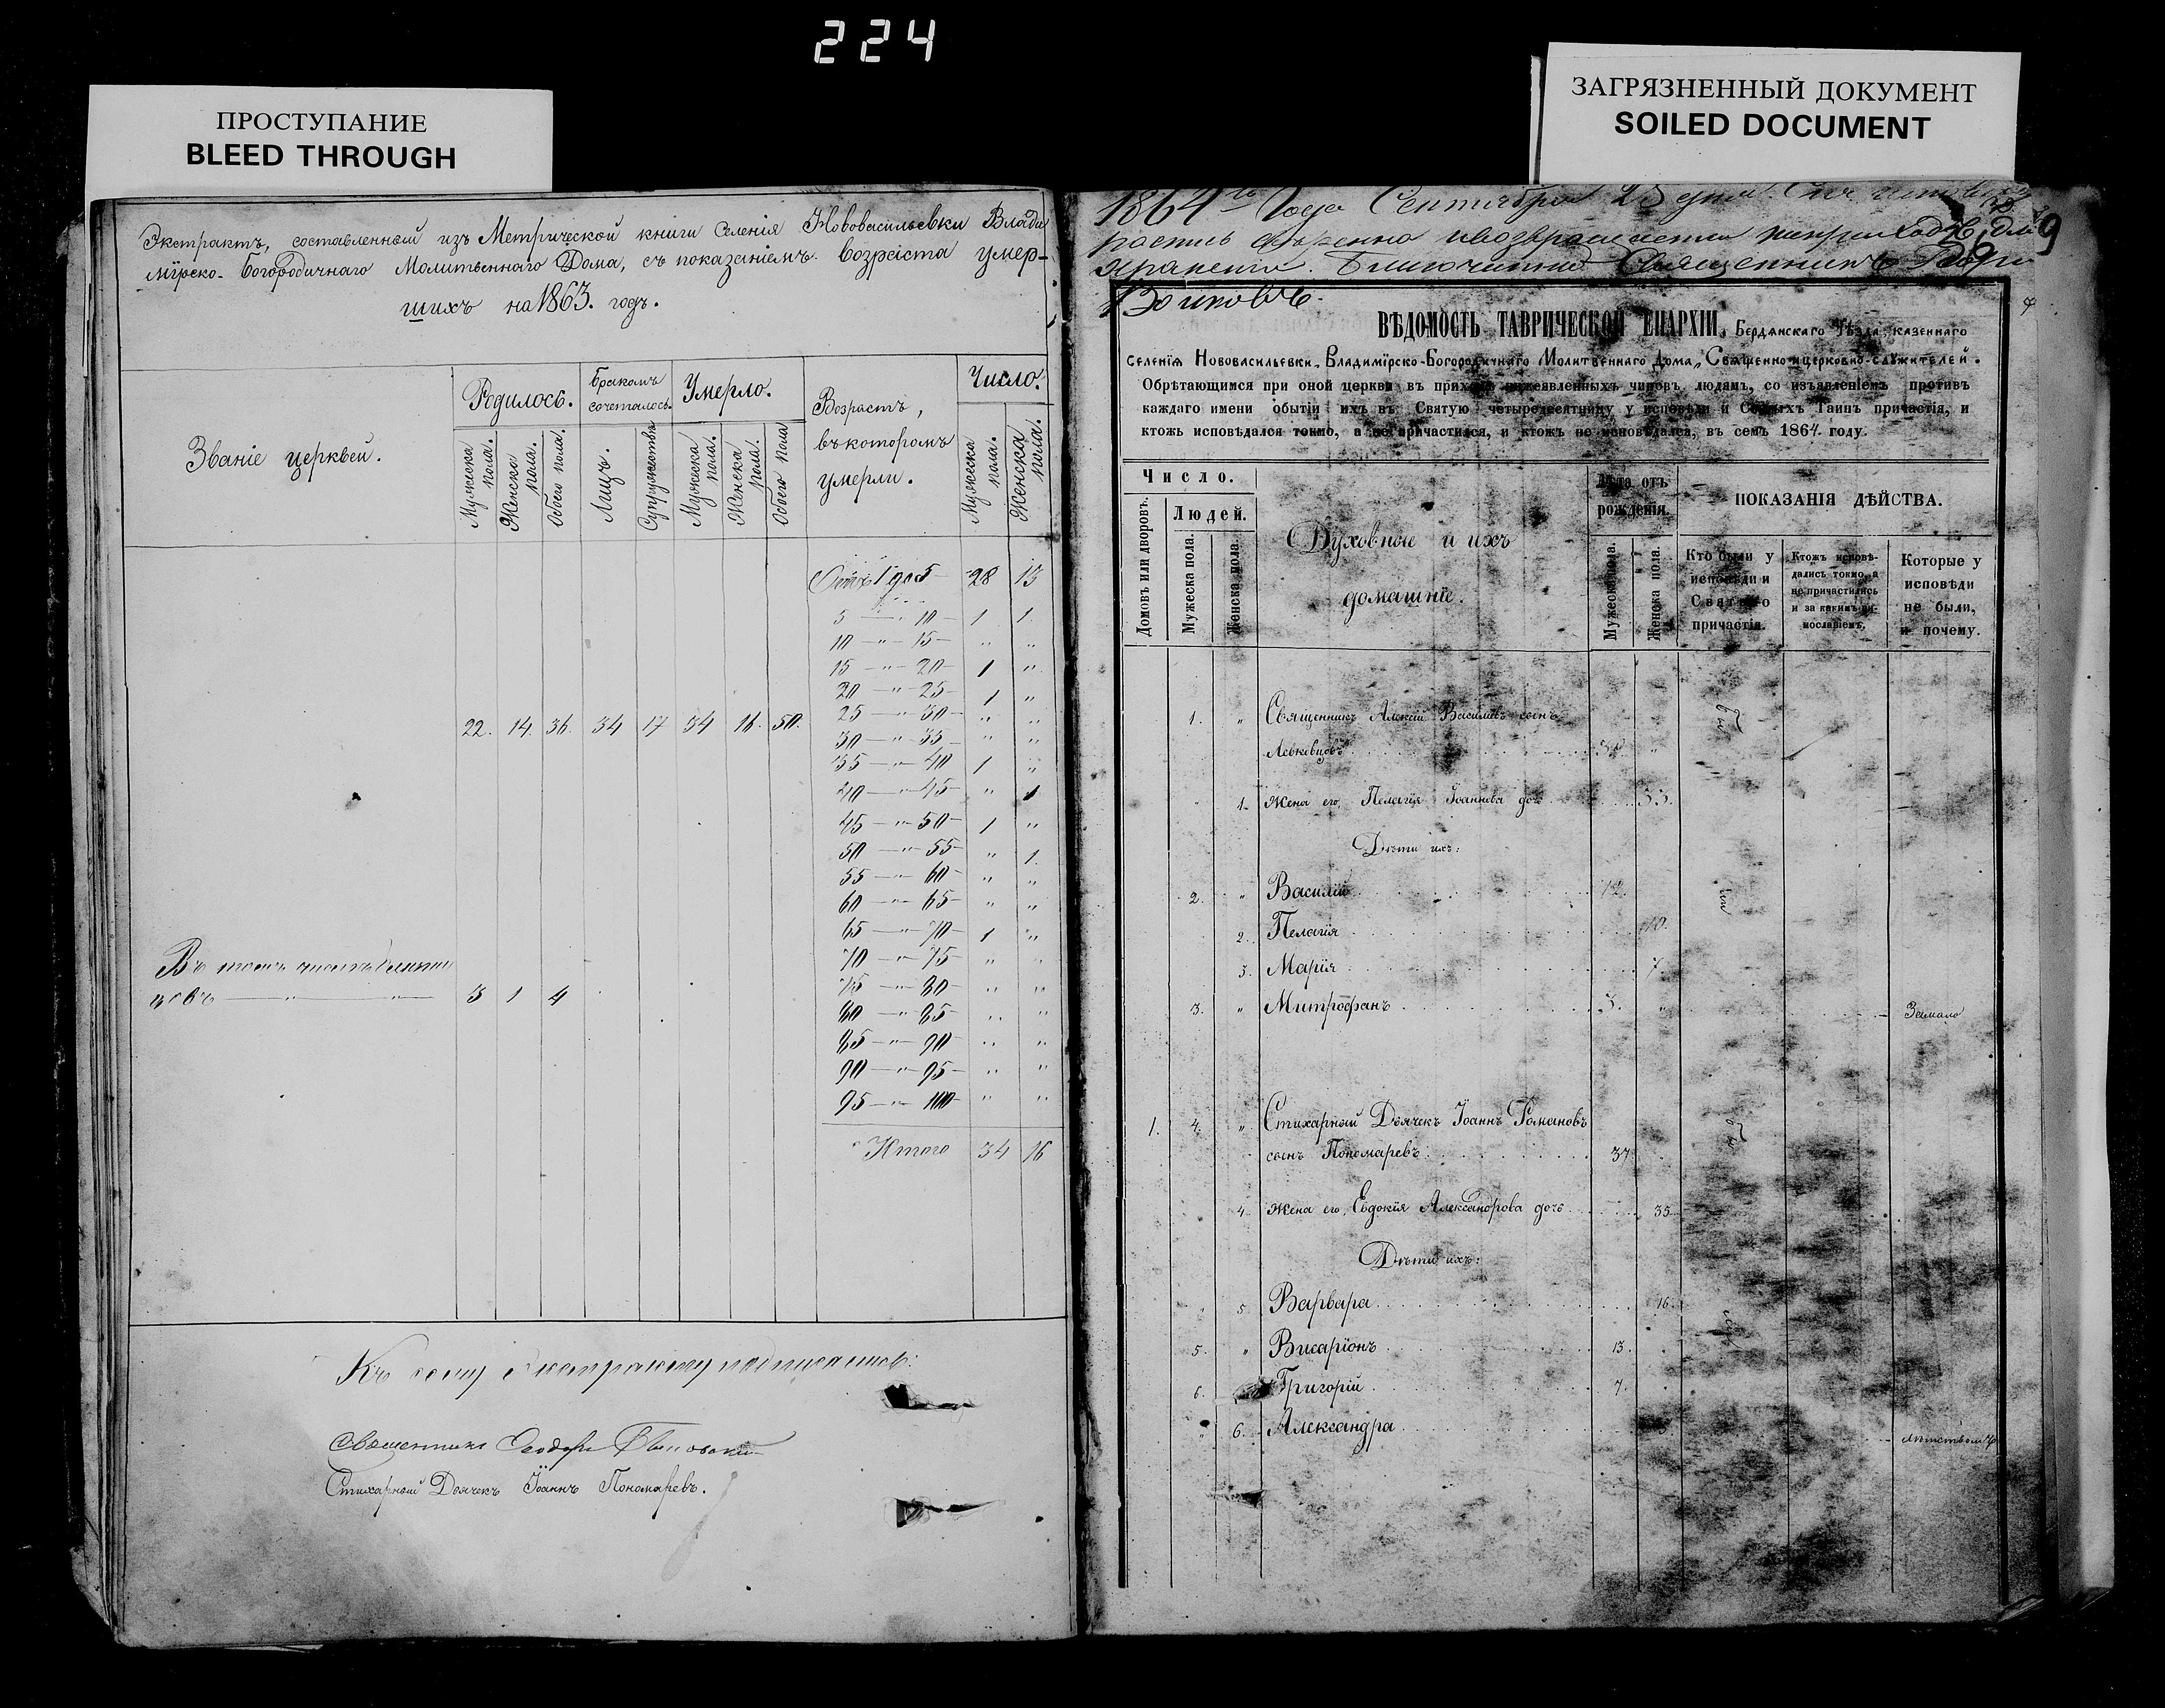 224
ПРОСТУПАНИЕ
BLEED THROUGH
ЗАГРЯЗНЕННЫЙ ДОКУМЕНТ
SOILED DOCUMENT
Экстрактъ, составленный изъ Метрической книги Селенія Нововасильевки Влади
мїрско-Богородичнаго Молитвеннаго Дома, съ показаніемъ возраста умер-
шихъ на 1863. годъ.
Званіе церквей.
Родилось.
Бракомъ сочеталось.
Умерло.
Возрастъ, въ которомъ умерли.
Число.
Мужеска пола.
Женска пола.
Обоего пола.
Лицъ.
Супружества
Мужеска пола.
Женска пола.
Обоего пола
Мужеска пола.
Женска пола.
Отъ 1 до 5 28 13
5 — " 10 — 1 1.
10 — " 15 — " "
15 — " 20 — 1 "
20 — " 25 — 1 "
25 — " 30 — " "
22. 14. 36. 34 17 34 16. 50.
30 — " 35 — " "
35 — " 40 1 "
40 — " 45 — " 1
45 — " 50 — 1 "
50 — " 55 — " 1.
55 — " 60 — " "
60 — " 65 — " "
65 — " 70 — 1 "
70 — " 75 — " "
75 — " 80 — " "
80 — " 85 — " "
85 — " 90 — " "
90 — " 95 — " "
95 — " 100 — " "
Въ томъ числѣ
3 1 4
Итого 34 16
Къ сему экстракту подписались:
Священникъ Ѳеодоръ
Стихарный Дьячекъ Іоаннъ Пономаревъ.
1864го Года Сентября 23 дня. Сія
для
храненія. Благочинный Священникъ
9
ВѢДОМОСТЬ ТАВРИЧЕСКОЙ ЕПАРХІИ, Бердянскаго Уѣзда, казеннаго
селенія Нововасильевки, Владимїрско-Богородичнаго Молитвеннаго Дома, Священно и церковно-служителей.
Обрѣтающимся при оной церкви въ приходѣ нижеявленныхъ чиновъ людямъ, со изъявленіемъ противъ
каждаго имени обытіи ихъ въ Святую четыредесятницу у исповѣди и Святыхъ Таинъ причастія, и
ктожъ исповѣдался токмо, а не причастился, и ктожъ не исповѣдался, въ семъ 1864 году.
Число.
Людей.
Домовъ или дворовъ.
Мужеска пола.
Женска пола.
Духовные и ихъ
домашніе.
Лѣта отъ рожденія.
Мужеска пола.
Женска пола.
ПОКАЗАНІЯ ДѢЙСТВА.
Кто были у исповѣди и Святаго причастія.
Ктожъ исповѣ-
дались токмо, а
не причастились
и за какимъ ви-
нословіемъ.
Которые у
исповѣди
не были,
и почему.
1. " Священникъ Алексій Васильевъ сынъ
1. Жена его, Пелагія Іоаннова дочь 33.
Дѣти ихъ:
2. " Василій 12.
2. Пелагія 10.
3. Марія 7.
3. " Митрофанъ 3. "
1. 4. " Стихарный Дьячекъ Іоаннъ Романовъ
сынъ Пономаревъ 37
4. Жена его, Евдокія Александрова дочь 35
Дѣти ихъ:
5 Варвара 16.
5. " Висаріонъ 13.
6. Григорій 7.
6. Александра